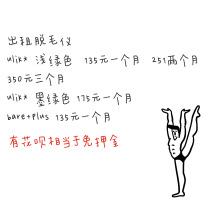 出租脱毛仪
ulike 浅绿色 135元一个月 251两个月
350元三个月
ulike 墨绿色 175元一个月
bare+plus 135元一个月
有花呗相当于免押金